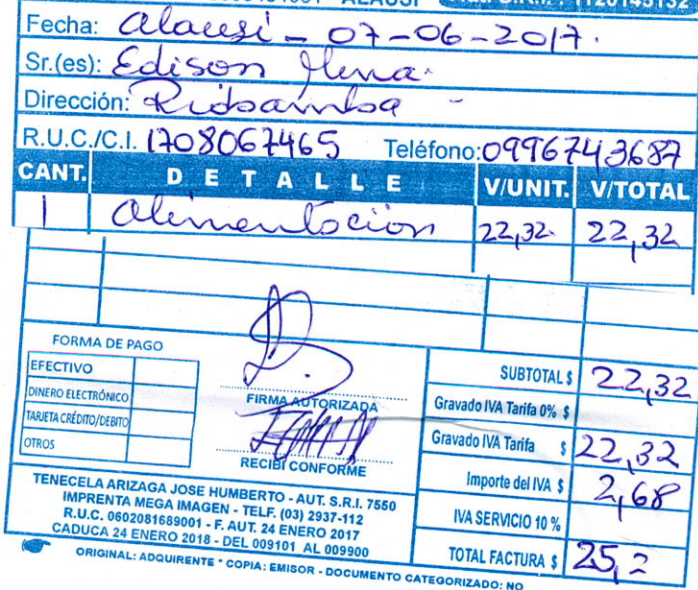 ALAUSI
Fecha: Alausi - 07-06-2017.
Sr.(es): Edison Mena.
Dirección: Riobamba -
R.U.C./C.I. 1708067465 Teléfono: 0996743687
CANT. DETALLE V/UNIT. V/TOTAL
1 Alimentacion 22,32 22,32
FORMA DE PAGO
EFECTIVO
DINERO ELECTRÓNICO
TARJETA CRÉDITO/DEBITO
OTROS
FIRMA AUTORIZADA
RECIBI CONFORME
SUBTOTAL $ 22,32
Gravado IVA Tarifa 0% $
Gravado IVA Tarifa $ 22,32
Importe del IVA $ 2,68
IVA SERVICIO 10 %
TOTAL FACTURA $ 25,2
TENECELA ARIZAGA JOSE HUMBERTO - AUT. S.R.I. 7550
IMPRENTA MEGA IMAGEN - TELF. (03) 2937-112
R.U.C. 0602081689001 - F. AUT. 24 ENERO 2017
CADUCA 24 ENERO 2018 - DEL 009101 AL 009900
ORIGINAL: ADQUIRENTE * COPIA: EMISOR - DOCUMENTO CATEGORIZADO: NO